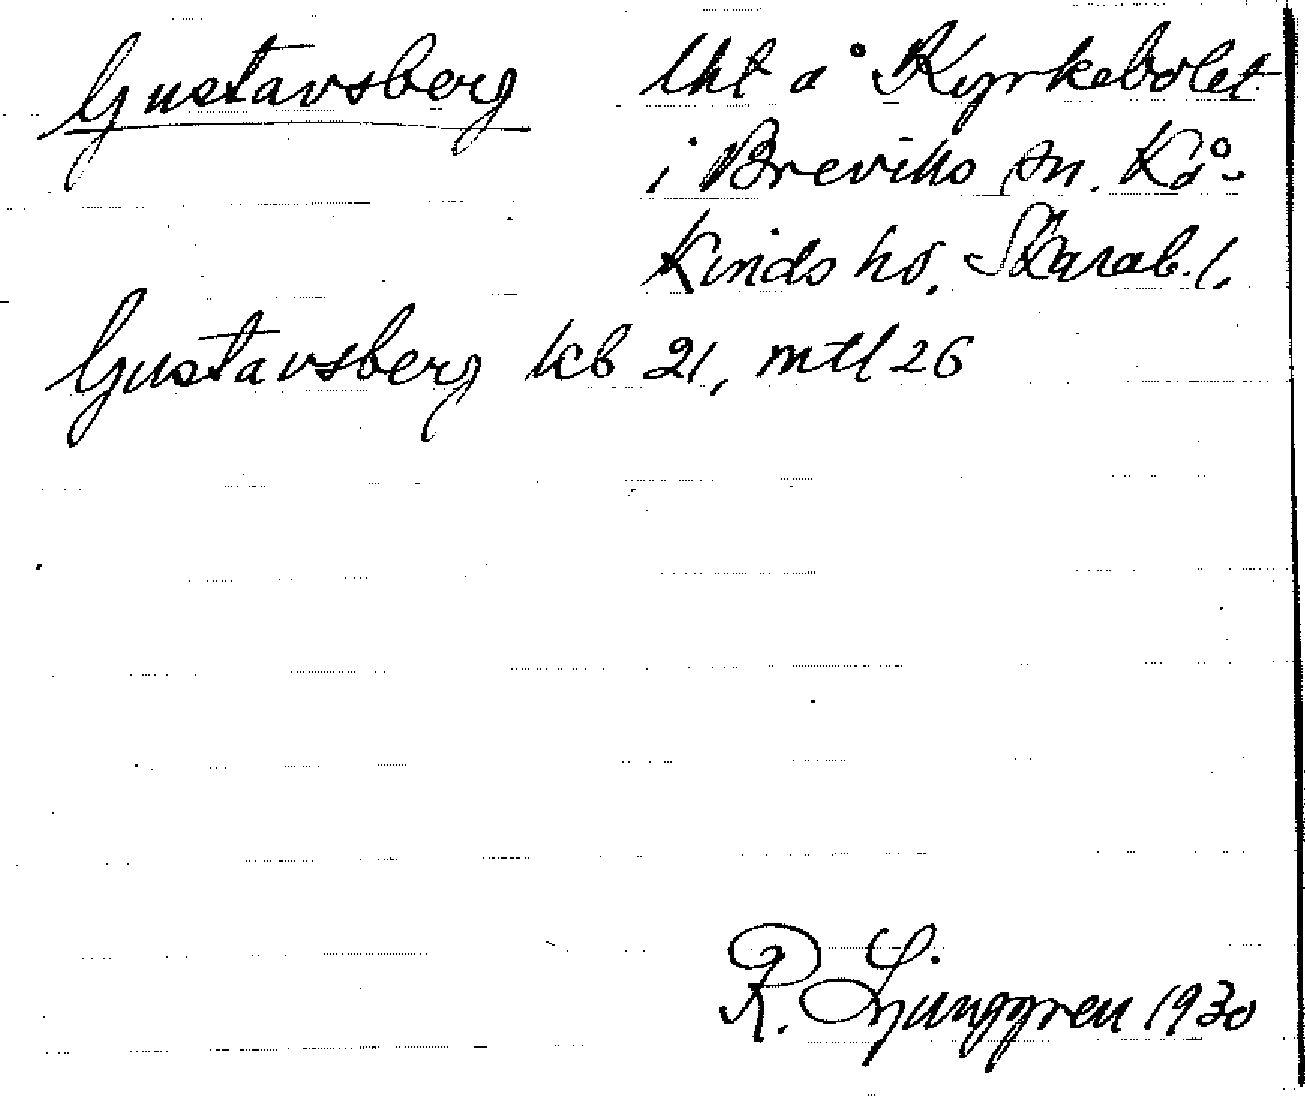 Gustavsberg lht å Kyrkebolet
i Breviks sn. Kå-
kinds hd. Skarab. l.
Gustavsberg kb 21, mtl 26
R. Ljunggren 1930